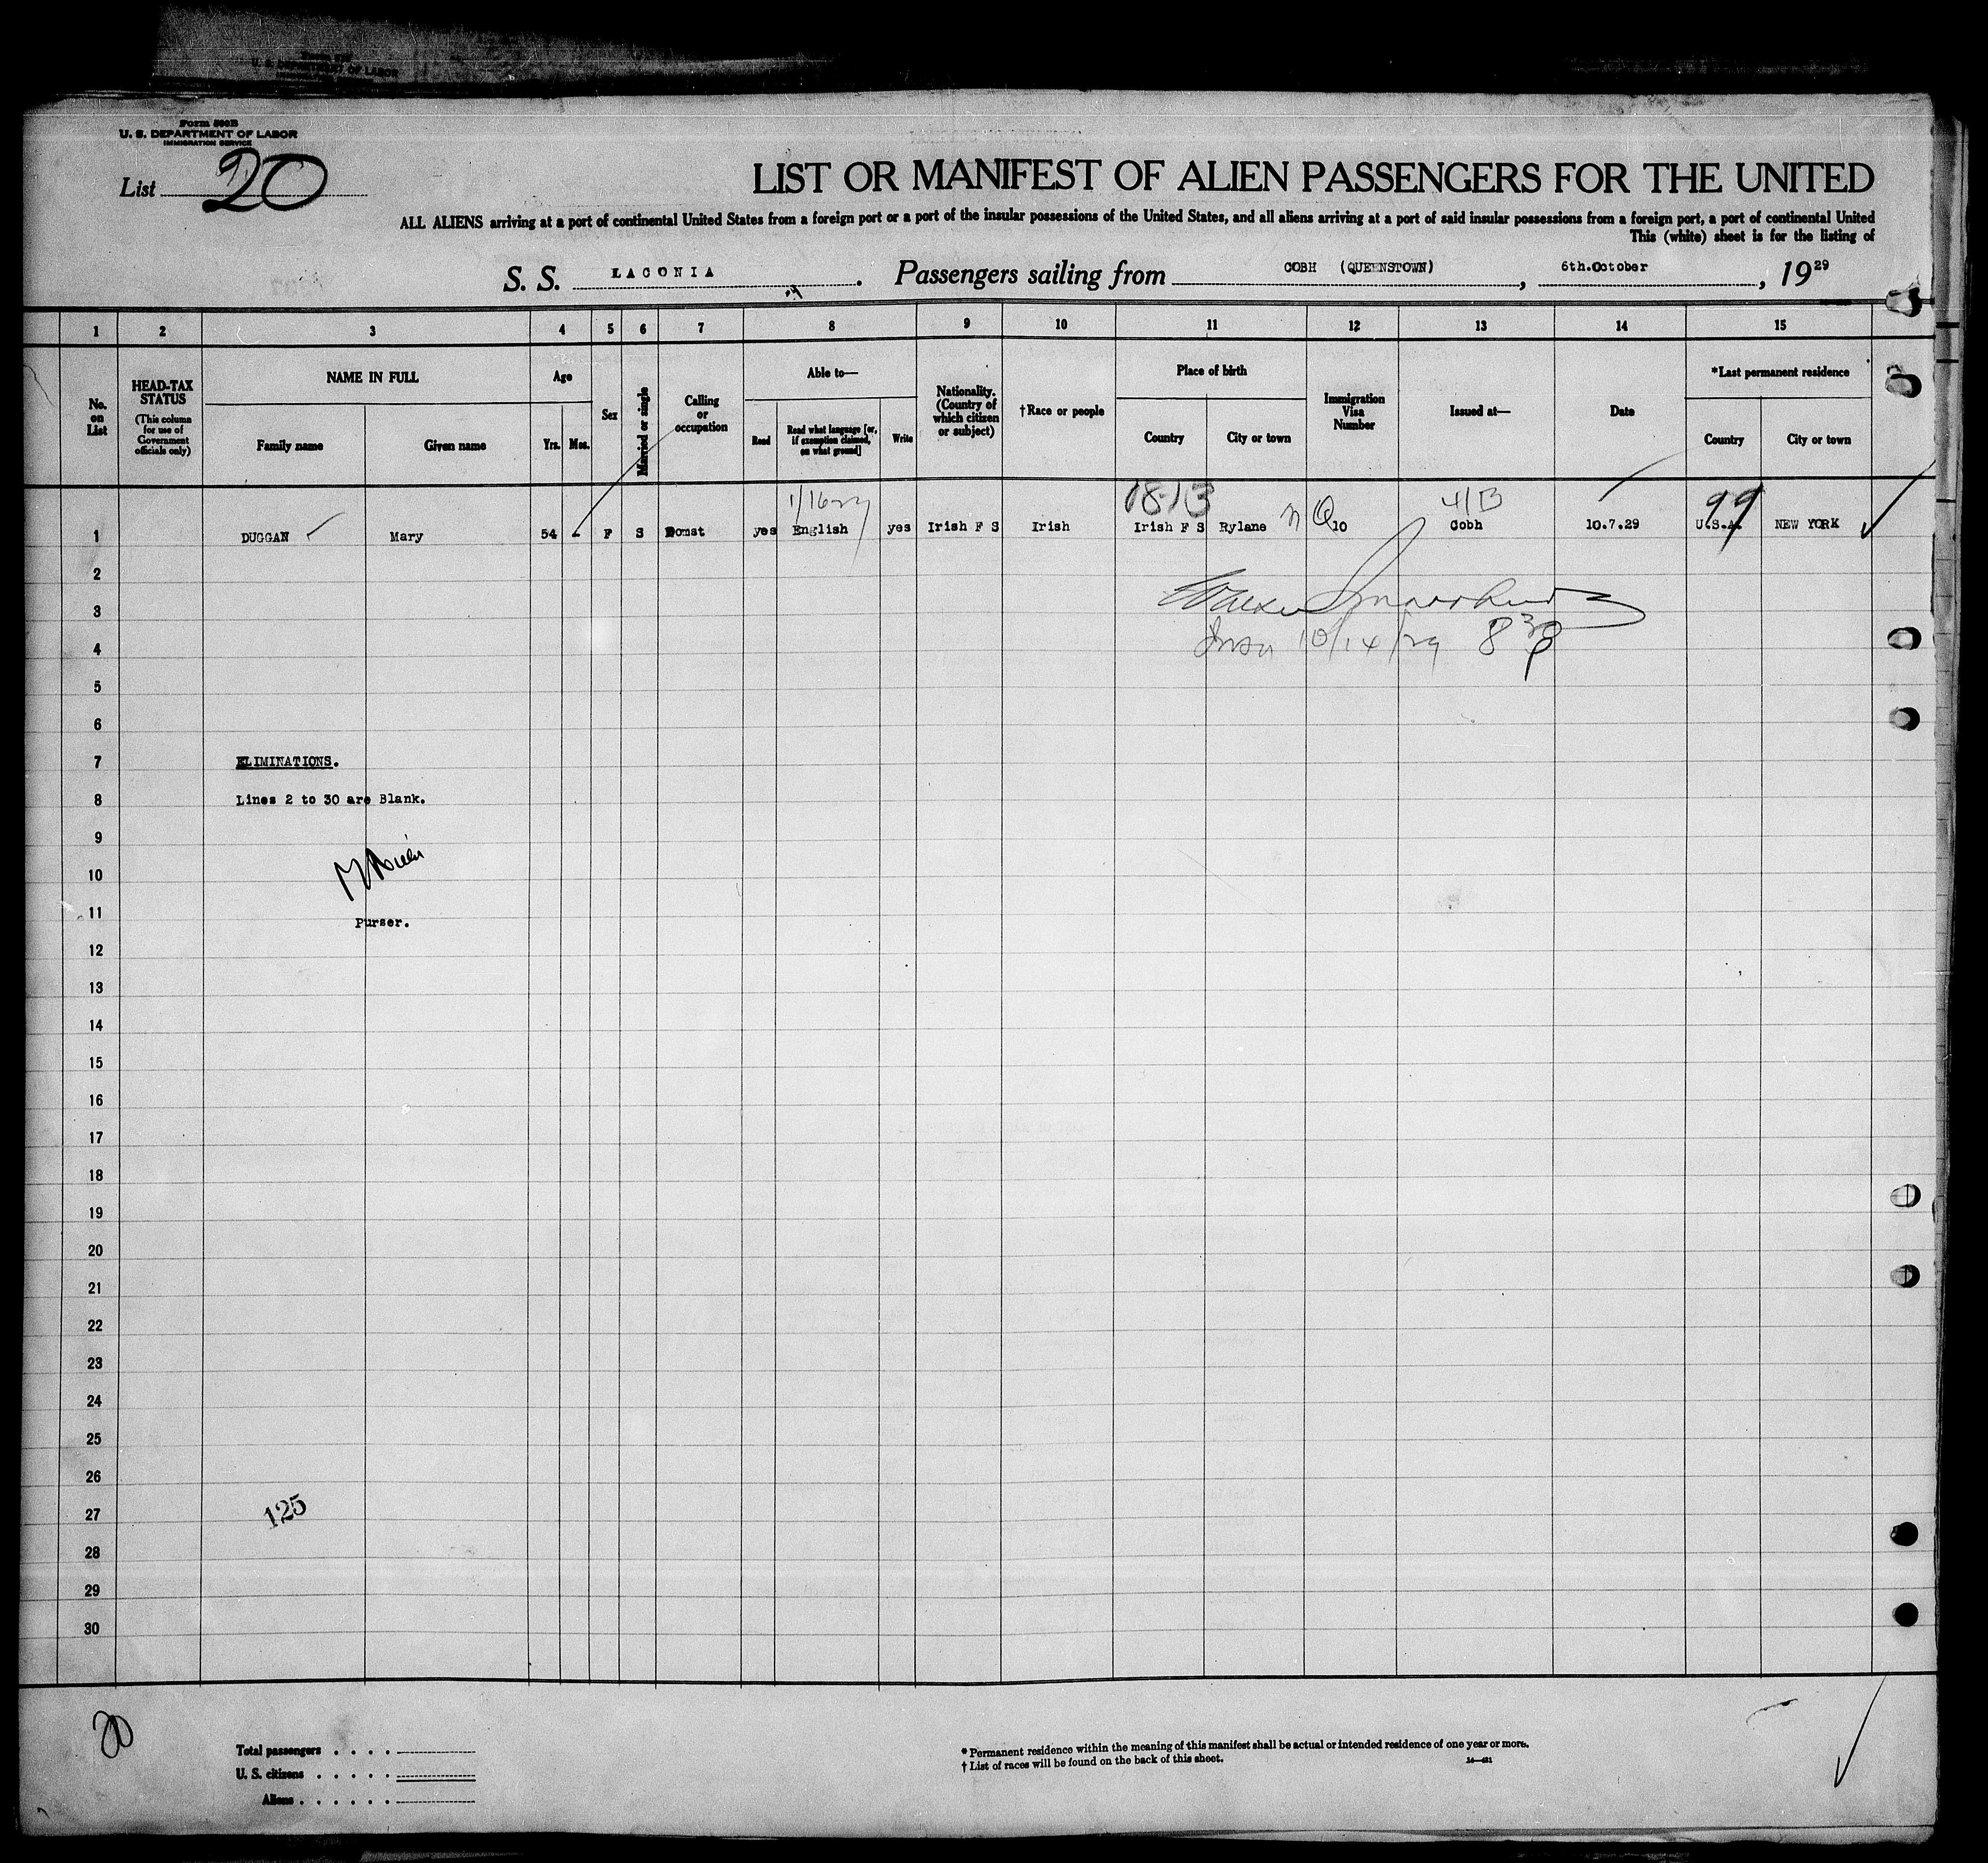 Form 500B
U. S. DEPARTMENT OF LABOR
IMMIGRATION SERVICE
List 20
LIST OR MANIFEST OF ALIEN PASSENGERS FOR THE UNITED
ALL ALIENS arriving at a port of continental United States from a foreign port or a port of the insular possessions of the United States, and all aliens arriving at a port of said insular possessions from a foreign port, a port of continental United
This (white) sheet is for the listing of
S. S. LACONIA. Passengers sailing from COBH (QUEENSTOWN), 6th.October, 1929
1 2 3 4 5 6 7 8 9 10 11 12 13 14 15
No. on List
HEAD-TAX STATUS (This column for use of Government officials only)
NAME IN FULL Family name Given name
Age Yrs. Mos.
Sex
Married or single
Calling or occupation
Able to— Read Read what language [or, if exemption claimed, on what ground] Write
Nationality. (Country of which citizen or subject)
†Race or people
Place of birth Country City or town
Immigration Visa Number
Issued at—
Date
*Last permanent residence Country City or town
18-13 99
1 DUGGAN Mary 54 F S Domst yes English yes Irish F S Irish Irish F S Rylane 10 Cobh 10.7.29 U.S.A. NEW YORK
2
3
4 10/14/29
5
6
7 ELIMINATIONS.
8 Lines 2 to 30 are Blank.
9
10
11 Purser.
12
13
14
15
16
17
18
19
20
21
22
23
24
25
26
27 125
28
29
30
20
Total passengers . . . .
U. S. citizens . . . . .
Aliens . . . . . .
* Permanent residence within the meaning of this manifest shall be actual or intended residence of one year or more.
† List of races will be found on the back of this sheet.